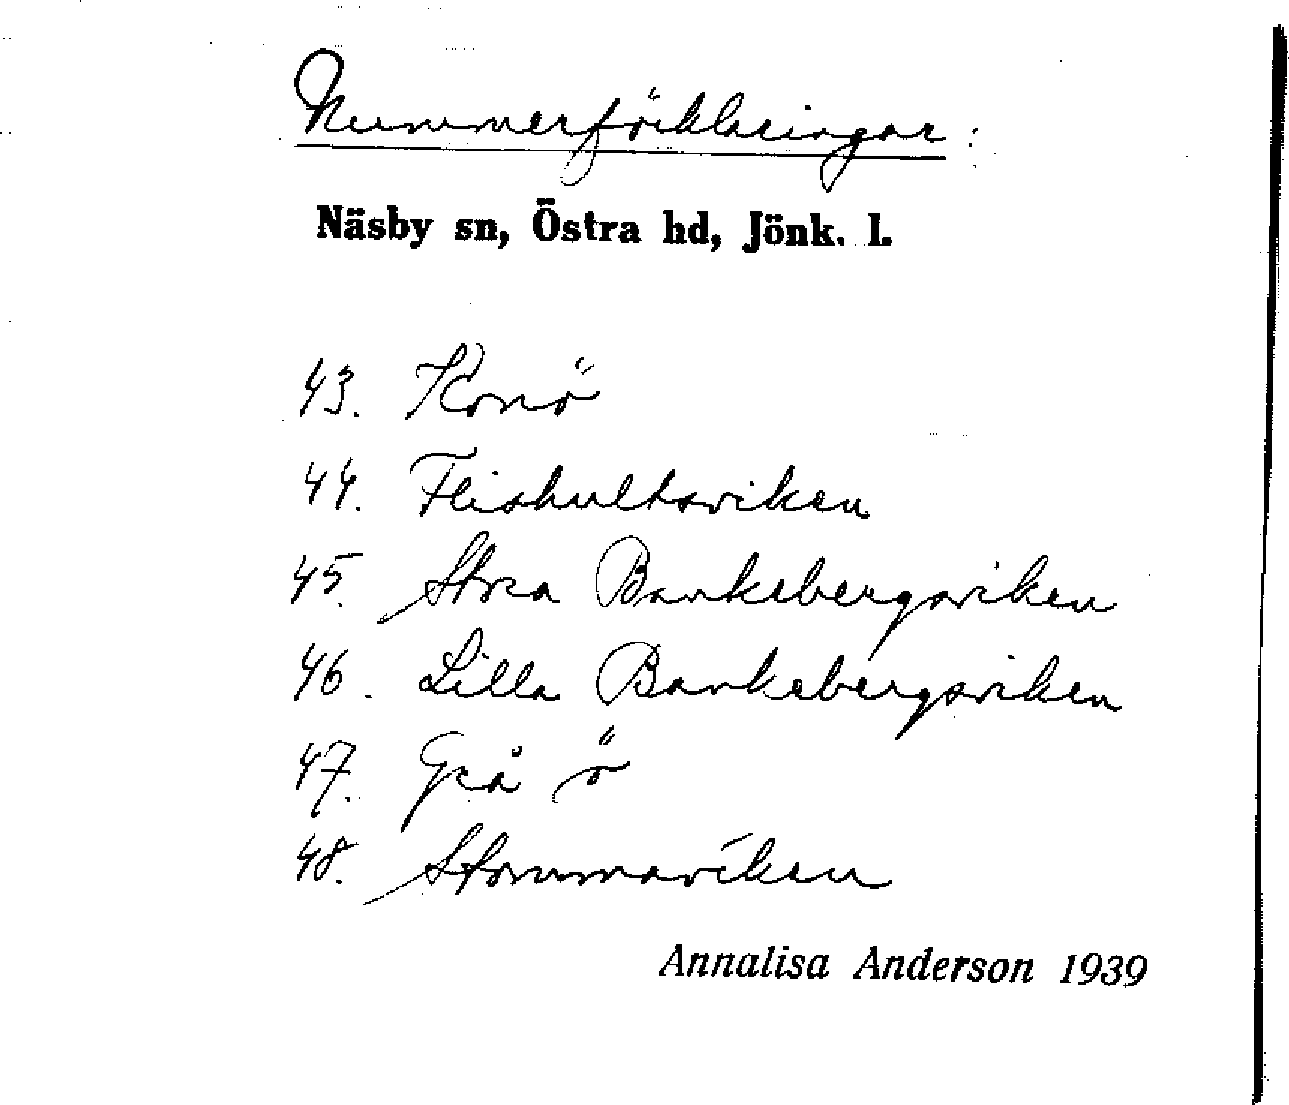 Nummerförklaringar:
Näsby sn, Östra hd, Jönk. l.
43. Konö
44. Flishultsviken
45. Stora Bankebergsviken
46. Lilla Bankebergsviken
47. Grå ö
48. Stommaviken
Annalisa Anderson 1939